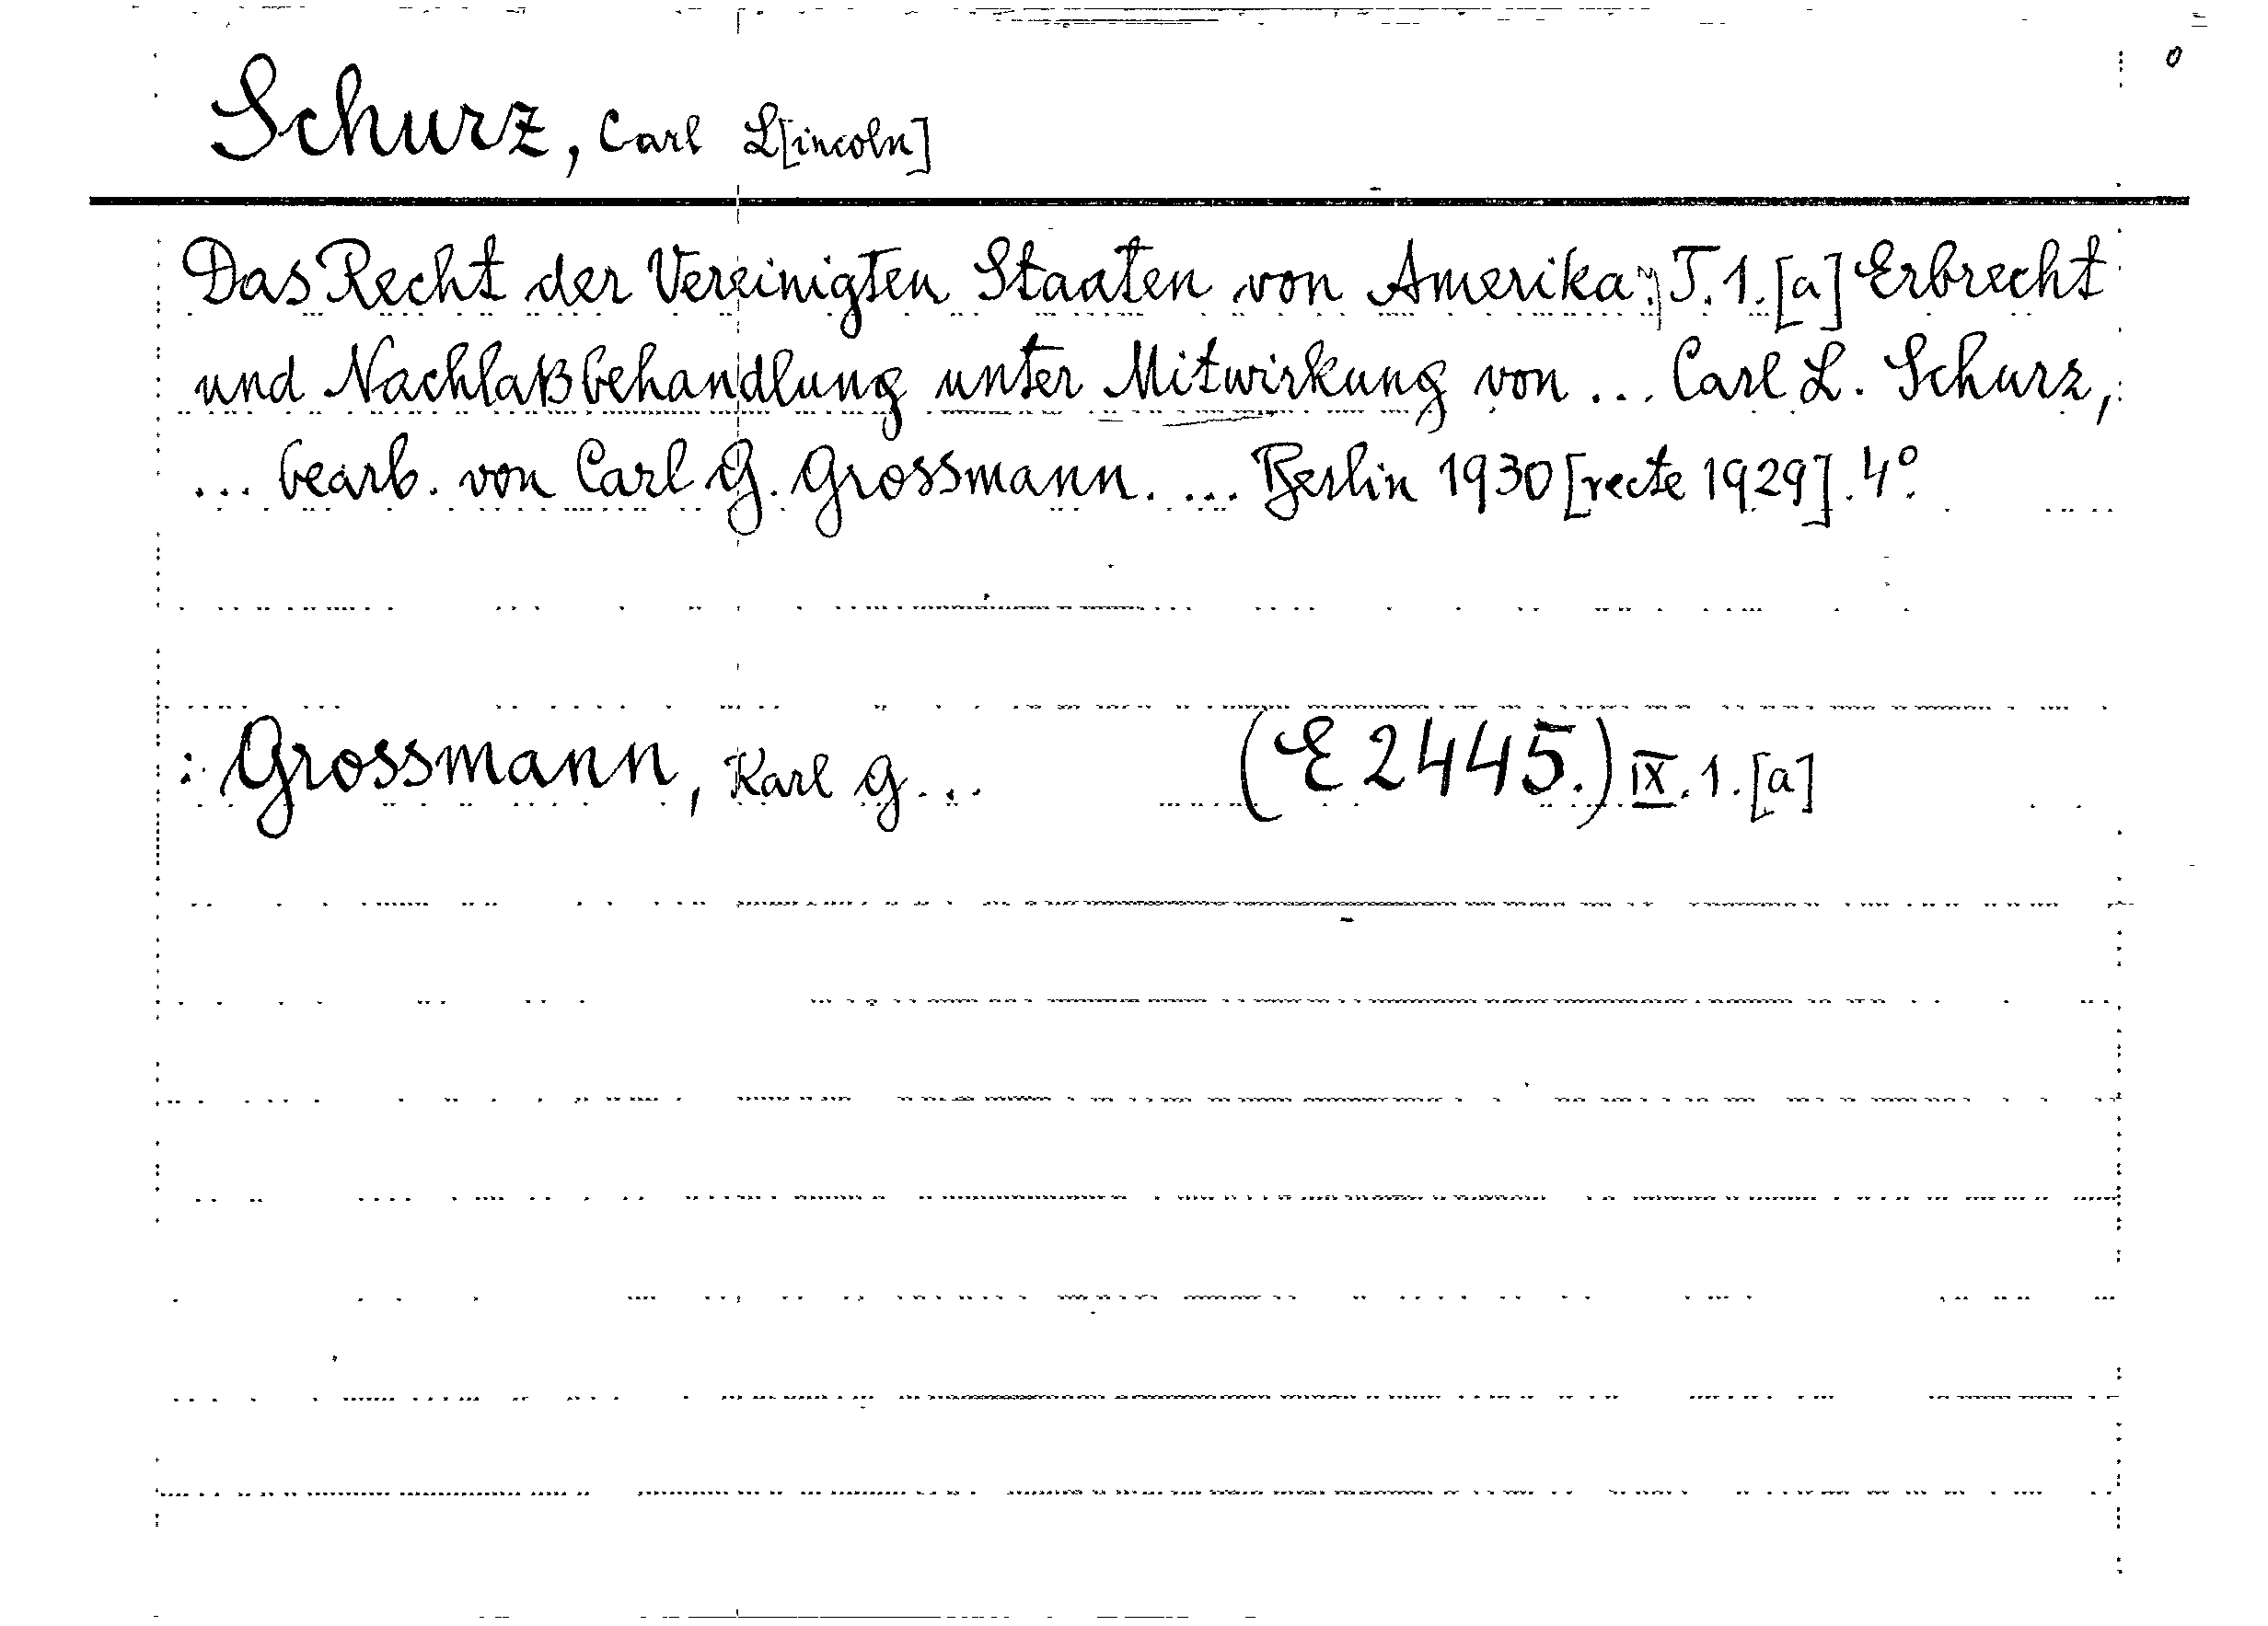 Schurz, Carl L[incoln]
Das Recht der Vereinigten Staaten von Amerika. T. 1. [a] Erbrecht
und Nachlaßbehandlung unter Mitwirkung von ... Carl L. Schurz,
... bearb. von Carl G. Grossmann. ... Berlin 1930 [recte 1929]. 4°.
: Grossmann, Karl G... (E 2445.) IX. 1. [a]